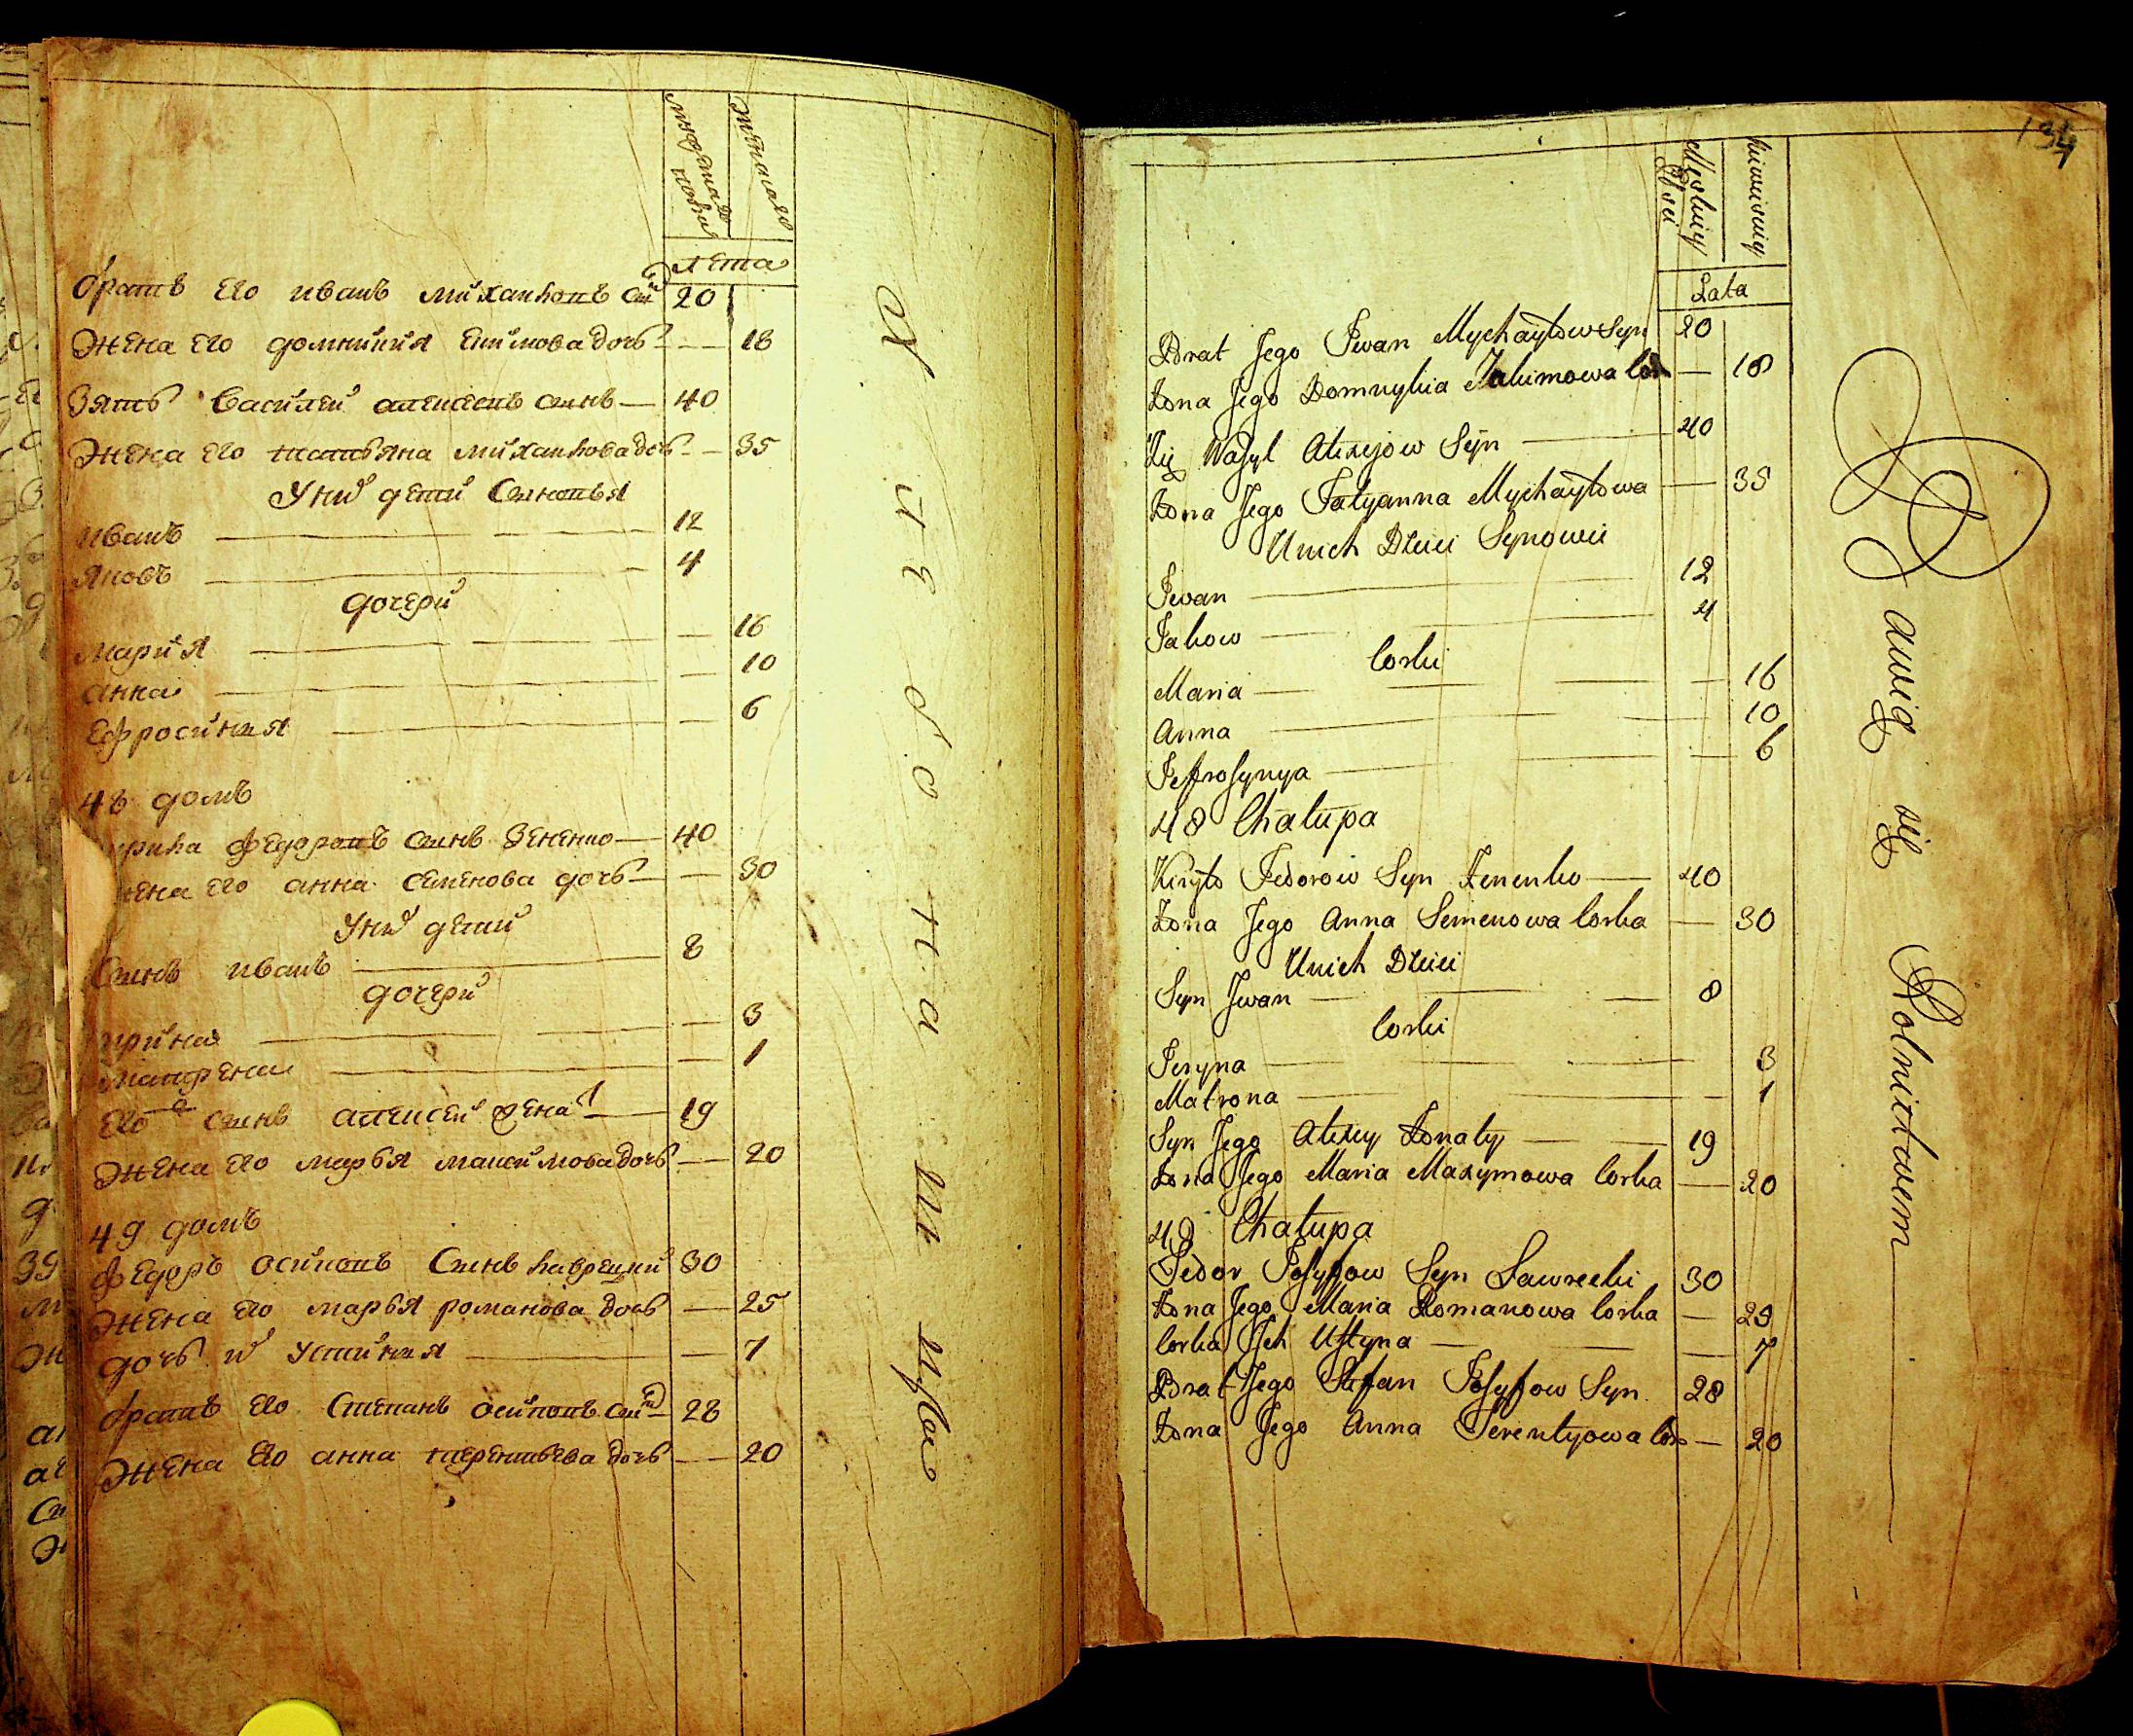 лета
братъ его иванъ михайловъ синъ 20
жена его домникия екимова дочь 18
Зять Василей алексеевъ синъ 40
жена его татьяна михайлова дочь 35
У них дети Синовья
иванъ 12
яковъ 4
дочери
мария 16
анна 10
Ефросиния 6
48 домъ
федоровъ синъ Зененко 40
жена его анна семенова дочь 30
У них дети
Синъ иванъ 8
дочери
ирина 3
матрена 1
Его синъ алексей женат 19
жена его марья максимова дочь 20
49 домъ
федоръ осиповъ Синъ лаврецкий 30
жена его марья романова дочь 25
дочь их устиния 7
братъ его Степанъ осиповъ синъ 28
жена его анна терентьева дочь 20
134
Męskiey Płci
Lata
Brat Jego Iwan Mychayłow Syn 20
Żona Jego Domnykia Jakimowa Cor 18
Zię Wasyl Alexejow Syn 40
Żona Jego Tatyanna Mychayłowa 35
Unich Dzieci Synowie
Iwan 12
Jakow 4
Corki
Maria 16
Anna 10
Jefrosynya 6
48 Chałupa
Kiryło Fedorow Syn Zenenko 40
Żona Jego Anna Semenowa Corka 30
Unich Dzieci
Syn Iwan 8
Corki
Jeryna 3
Matrona 1
Syn Jego Alexy Żonaty 19
Żona Jego Maria Maxymowa Corka 20
49 Chałupa
Fedor Josyfow Syn Lawrecki 30
Żona Jego Maria Romanowa Corka 25
Corka Ich Ustyna 7
Brat Jego Stefan Josyfow Syn 28
Żona Jego Anna Terentyowa Cor 20
Bawią się Rolnictwem